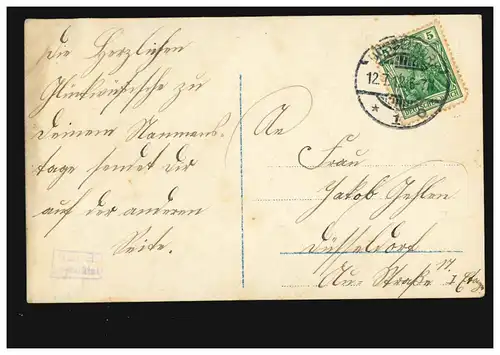 die Herzlichen
Glückwünsche zu
deinem Nanmens-
tage sendet dir
auf der anderen
Seite.
An
Frau
Jakob Gehlen
Düsseldorf
Straße 17. I Etage
5
12.7